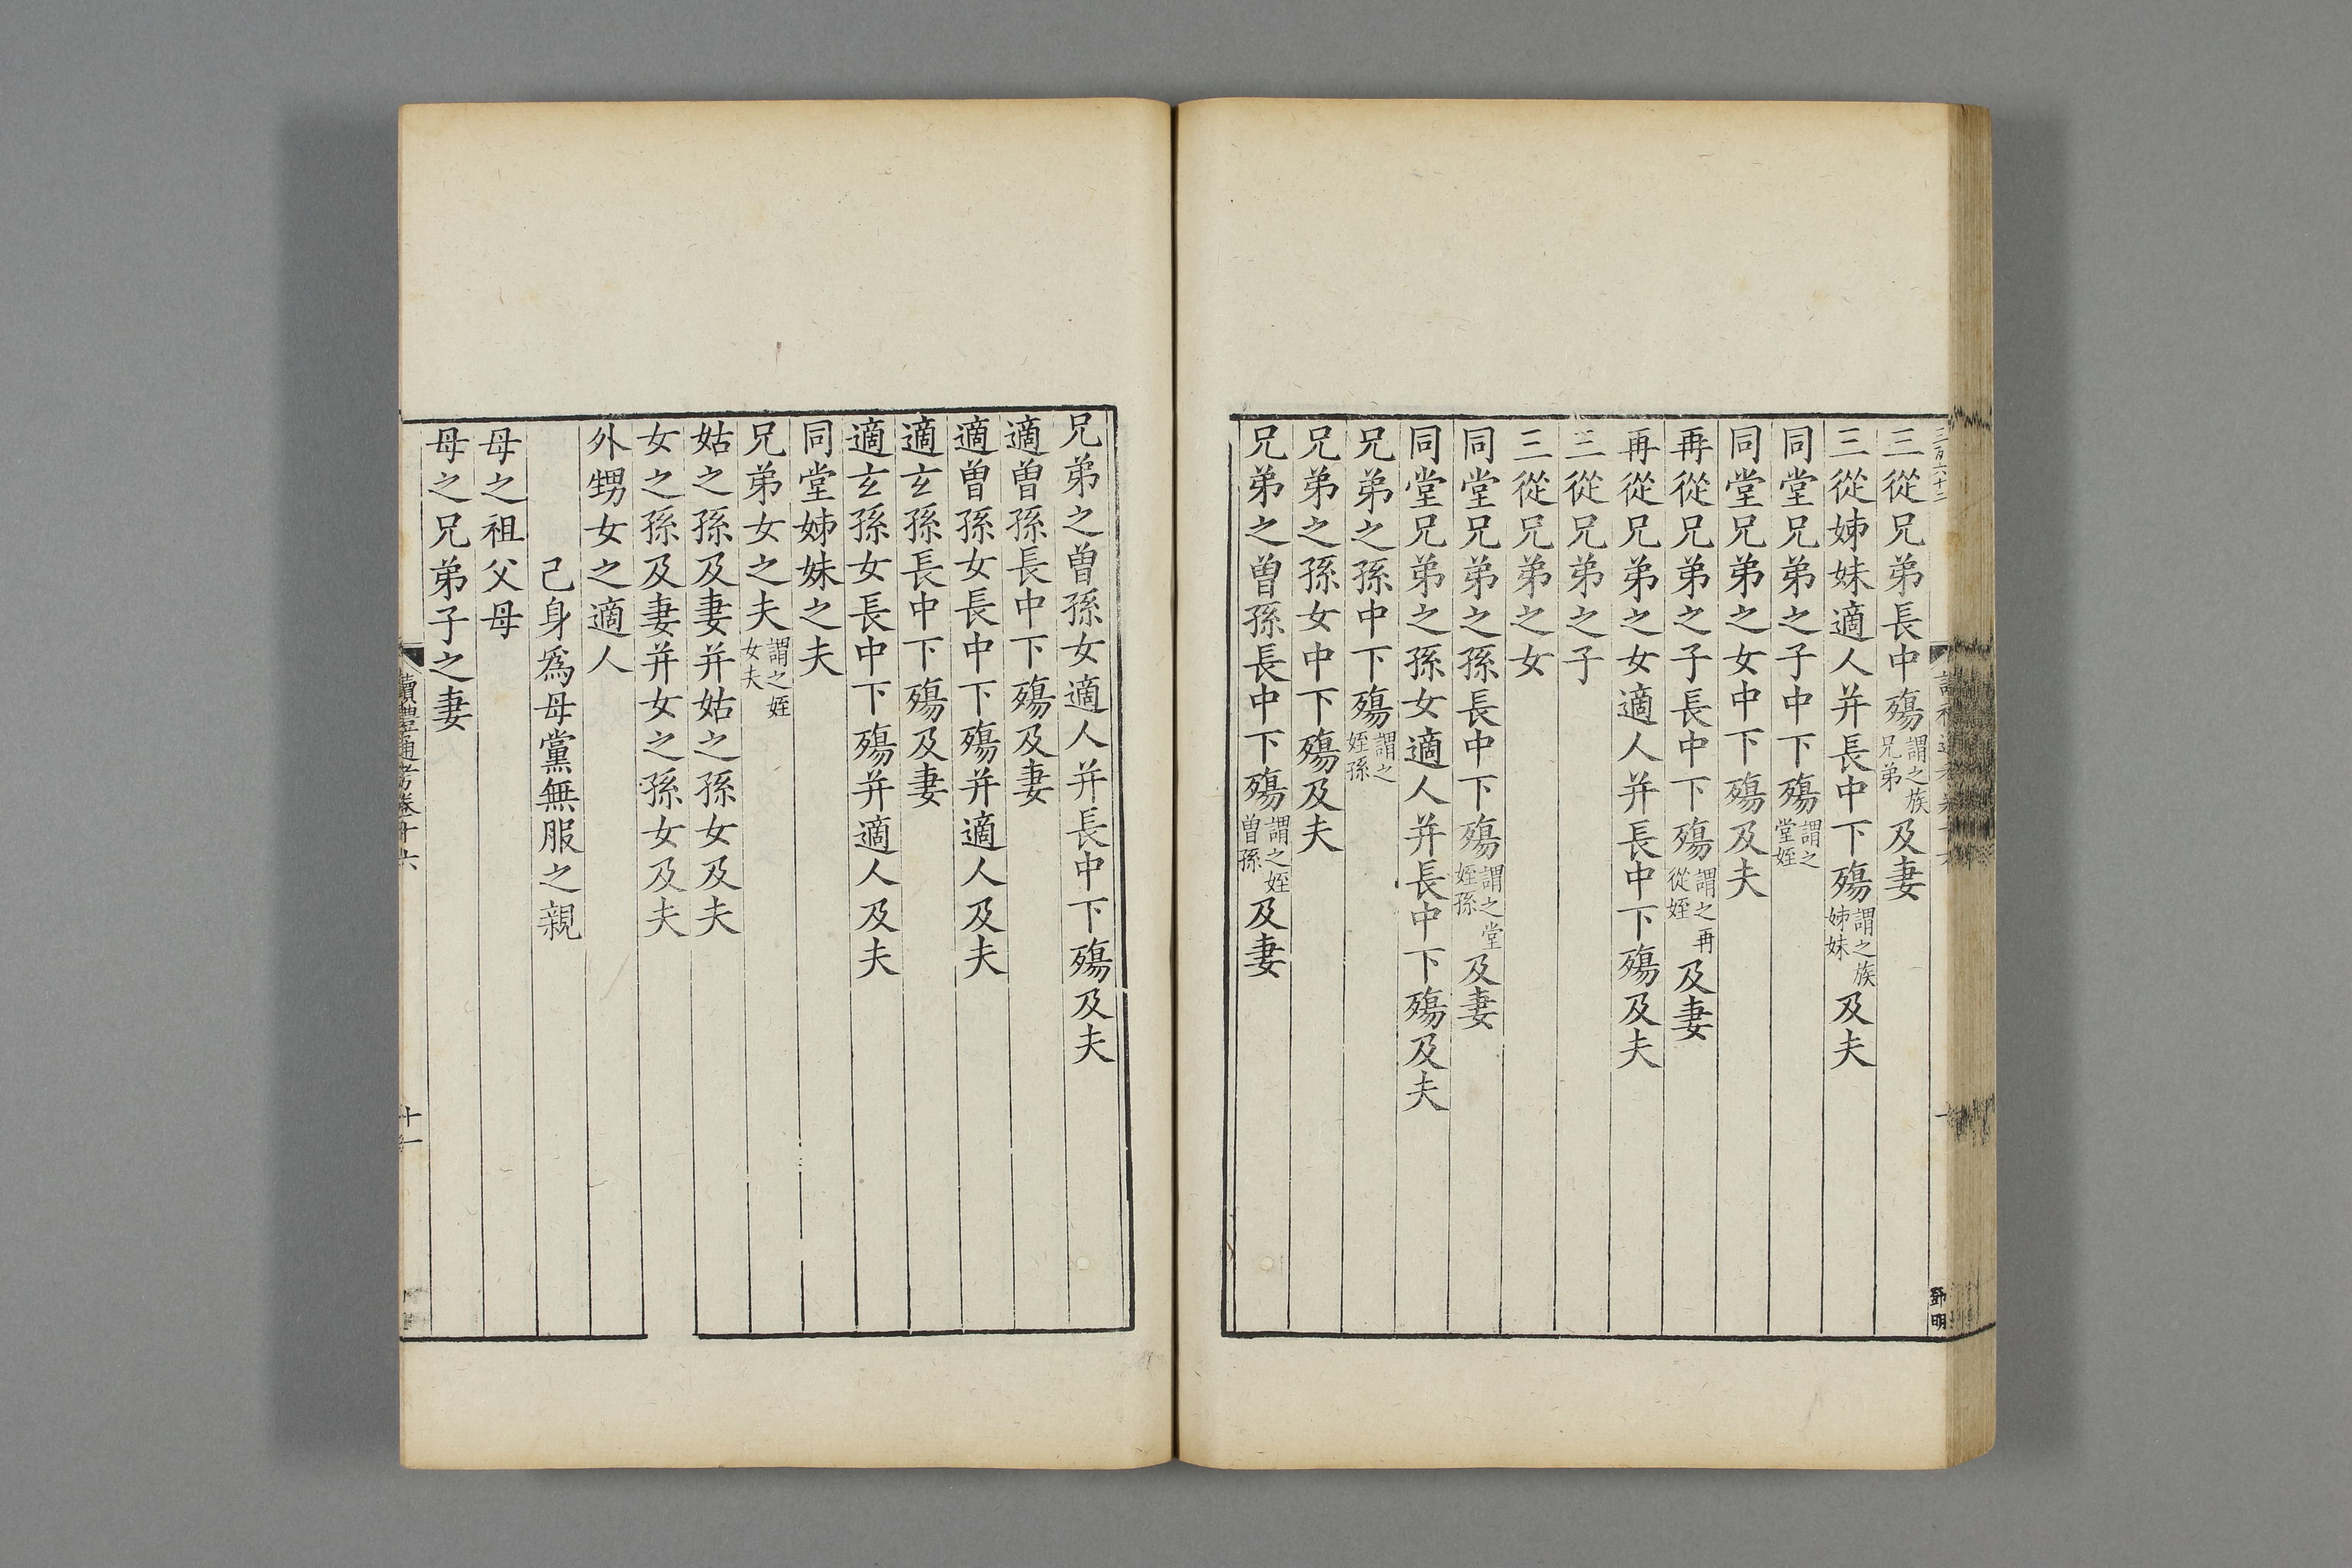 三百六十二
三從兄弟長中殤謂之族兄弟及妻
三從姊妹適人并長中下殤謂之族姊妹及夫
同堂兄弟之子中下殤謂之堂姪
同堂兄弟之女中下殤及夫
再從兄弟之子長中下殤謂之再從姪及妻
再從兄弟之女適人并長中下殤及夫
三從兄弟之子
三從兄弟之女
同堂兄弟之孫長中下殤謂之堂姪孫及妻
同堂兄弟之孫女適人并長中下殤及夫
兄弟之孫中下殤謂之姪孫
兄弟之孫女中下殤及夫
兄弟之曾孫長中下殤謂之姪曾孫及妻
鄧明
兄弟之曾孫女適人并長中下殤及夫
適曾孫長中下殤及妻
適曾孫女長中下殤并適人及夫
適玄孫長中下殤及妻
適玄孫女長中下殤并適人及夫
同堂姊妹之夫
兄弟女之夫謂之姪女夫
姑之孫及妻并姑之孫女及夫
女之孫及妻并女之孫女及夫
外甥女之適人
己身爲母黨無服之親
母之祖父母
母之兄弟子之妻
讀禮通考卷十六
十一